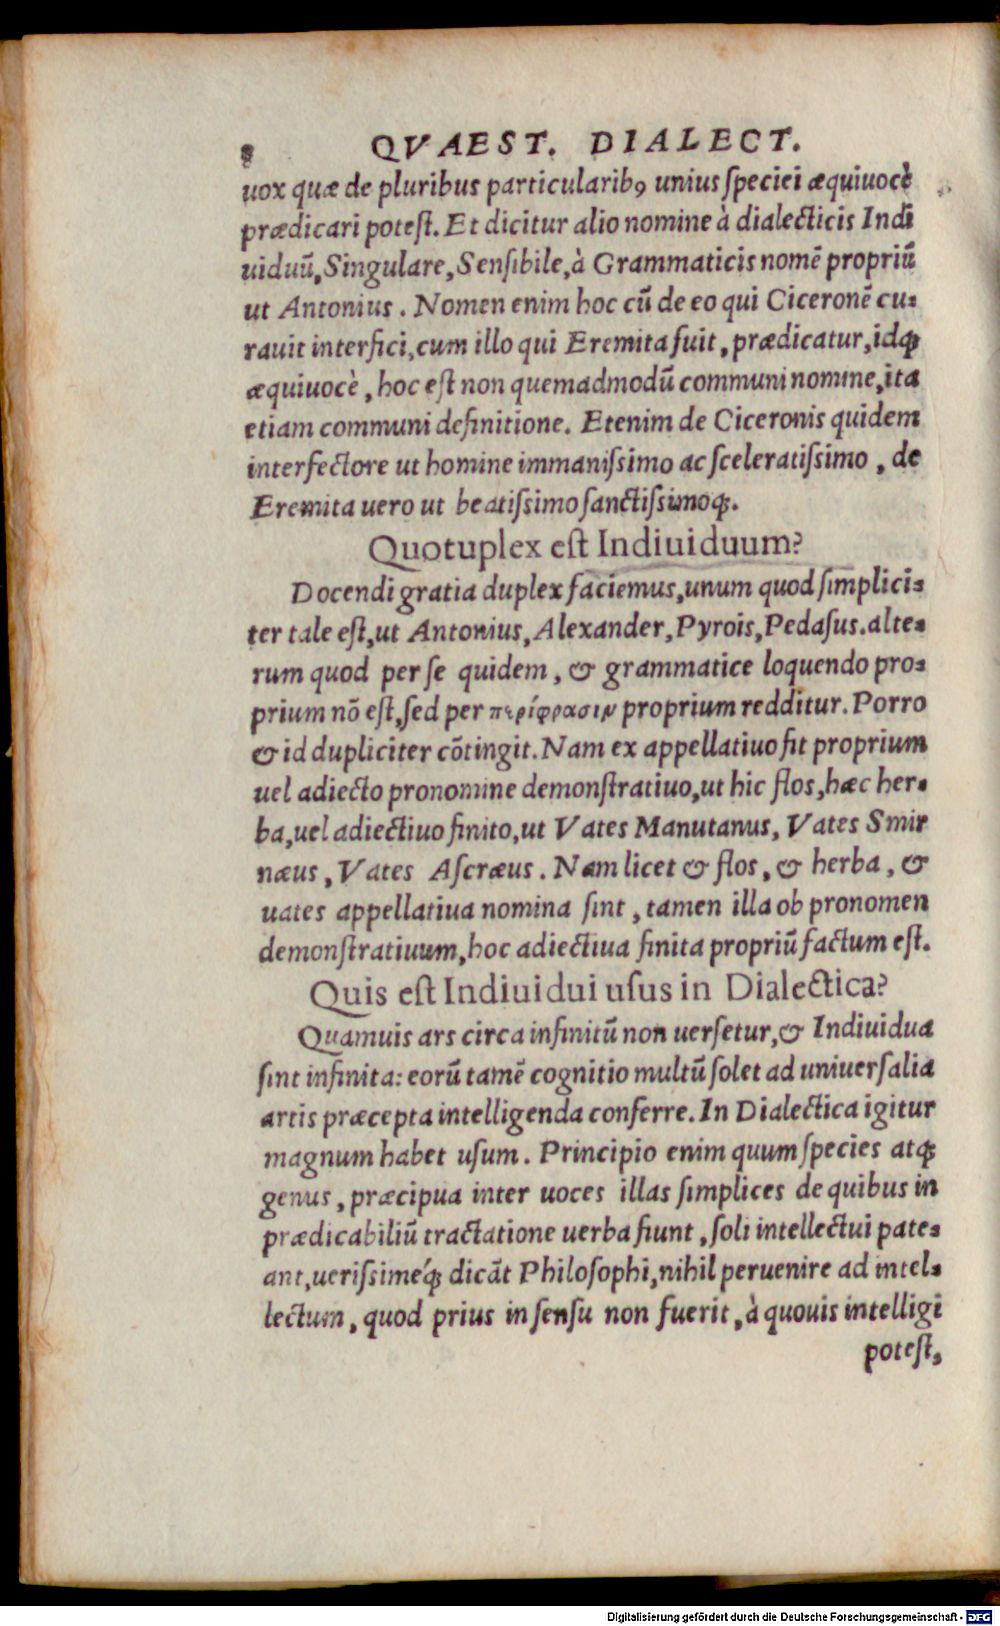 8 QVAEST. DIALECT.
uox quæ de pluribus particularibꝰ unius speciei æquiuocè
prædicari potest. Et dicitur alio nomine à dialecticis Indi
uiduũ, Singulare, Sensibile, à Grammaticis nomẽ propriũ
ut Antonius. Nomen enim hoc cũ de eo qui Ciceronẽ cu-
rauit interfici, cum illo qui Eremita fuit, prædicatur, idq́;
æquiuocè, hoc est non quemadmodũ communi nomine, ita
etiam communi definitione. Etenim de Ciceronis quidem
interfectore ut homine immanissimo ac sceleratissimo, de
Eremita uero ut beatissimo sanctissimoq́;.
Quotuplex est Indiuiduum?
Docendi gratia duplex faciemus, unum quod simplici-
ter tale est, ut Antonius, Alexander, Pyrois, Pedasus. alte-
rum quod per se quidem, & grammatice loquendo pro-
prium nõ est, sed per περίφρασιν proprium redditur. Porro
& id dupliciter cõtingit. Nam ex appellatiuo fit proprium
uel adiecto pronomine demonstratiuo, ut hic flos, hæc her-
ba, uel adiectiuo finito, ut Vates Manutanus, Vates Smir
næus, Vates Ascræus. Nam licet & flos, & herba, &
uates appellatiua nomina sint, tamen illa ob pronomen
demonstratiuum, hoc adiectiua finita propriũ factum est.
Quis est Indiuidui usus in Dialectica?
Quamuis ars circa infinitũ non uersetur, & Indiuidua
sint infinita: eorũ tamẽ cognitio multũ solet ad uniuersalia
artis præcepta intelligenda conferre. In Dialectica igitur
magnum habet usum. Principio enim quum species atq;
genus, præcipua inter uoces illas simplices de quibus in
prædicabiliũ tractatione uerba fiunt, soli intellectui pate-
ant, uerissimeq́; dicãt Philosophi, nihil peruenire ad intel-
lectum, quod prius in sensu non fuerit, à quouis intelligi
potest,
Digitalisierung gefördert durch die Deutsche Forschungsgemeinschaft - DFG